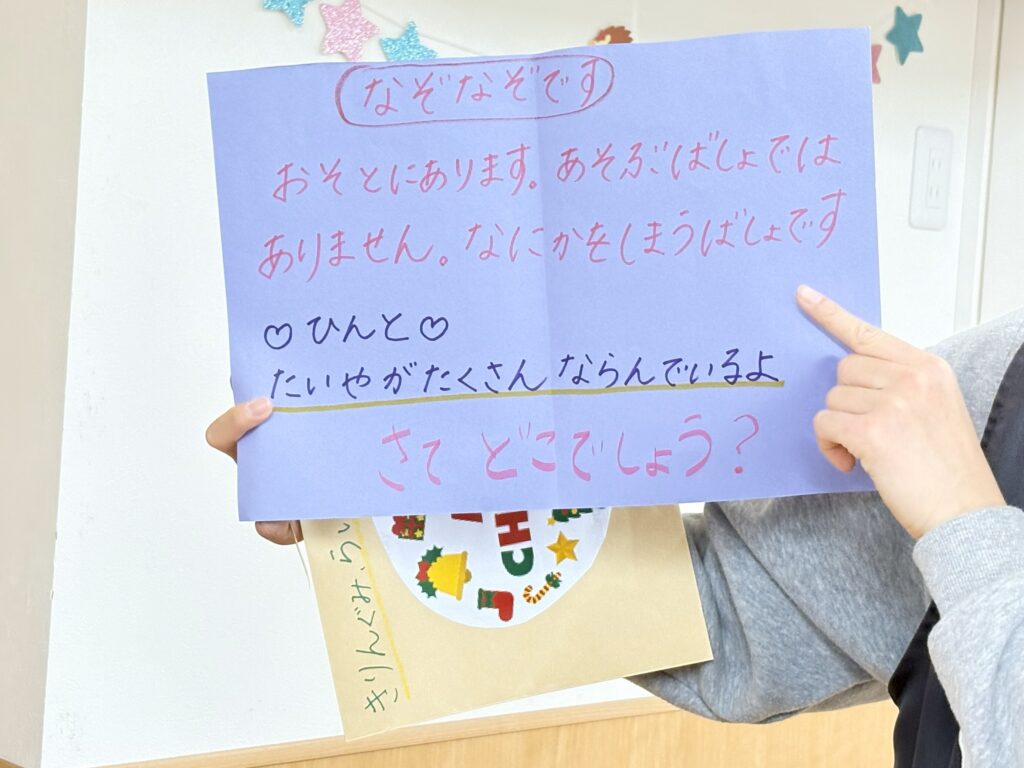 なぞなぞです
おそとにあります。あそぶばしょでは
ありません。なにかをしまうばしょです
♡ひんと♡
たいやがたくさんならんでいるよ
さて どこでしょう？
CH
きりんぐみ、らい